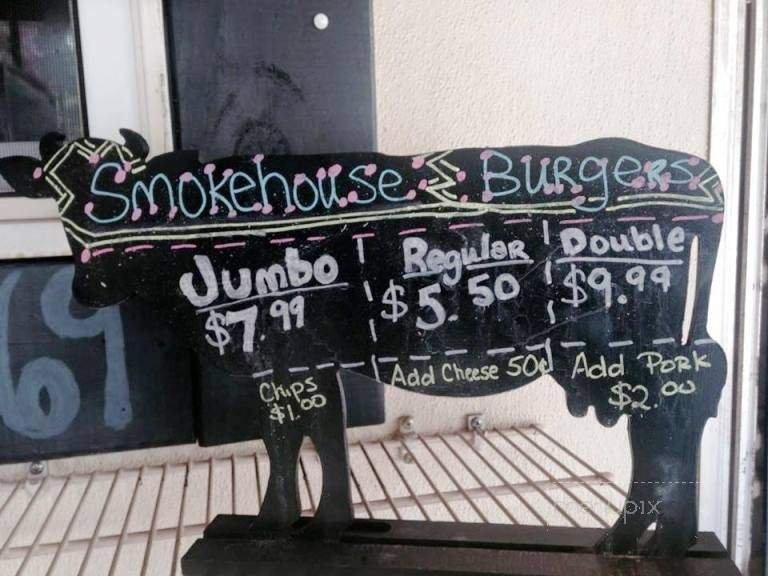 Smokehouse Burgers
Jumbo
$7.99
Regular
$5.50
Double
$9.99
Chips
$1.00
Add Cheese 50¢
Add Pork
$2.00
69